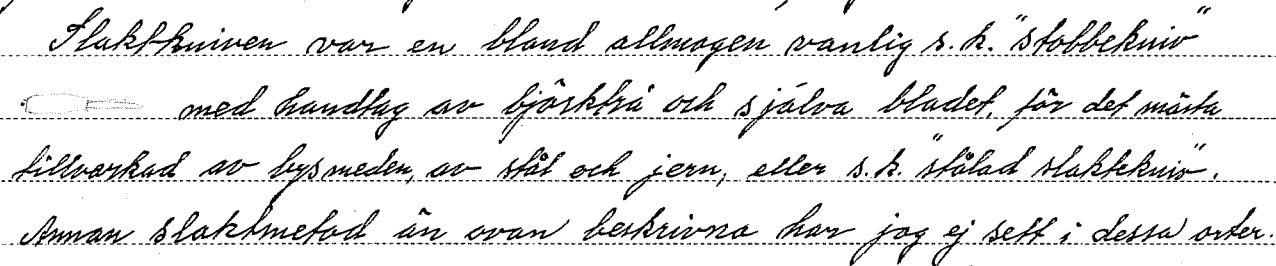 Slaktkniven var en bland allmogen vanlig s.k. "stobbekniv"
med handtag av björkträ och själva bladet, för det mästa
tillverkad av bysmeden, av stål och jern, eller s.k. "stålad slaktekniv".
Annan slaktmetod än ovan beskrivna har jag ej sett i dessa orter.